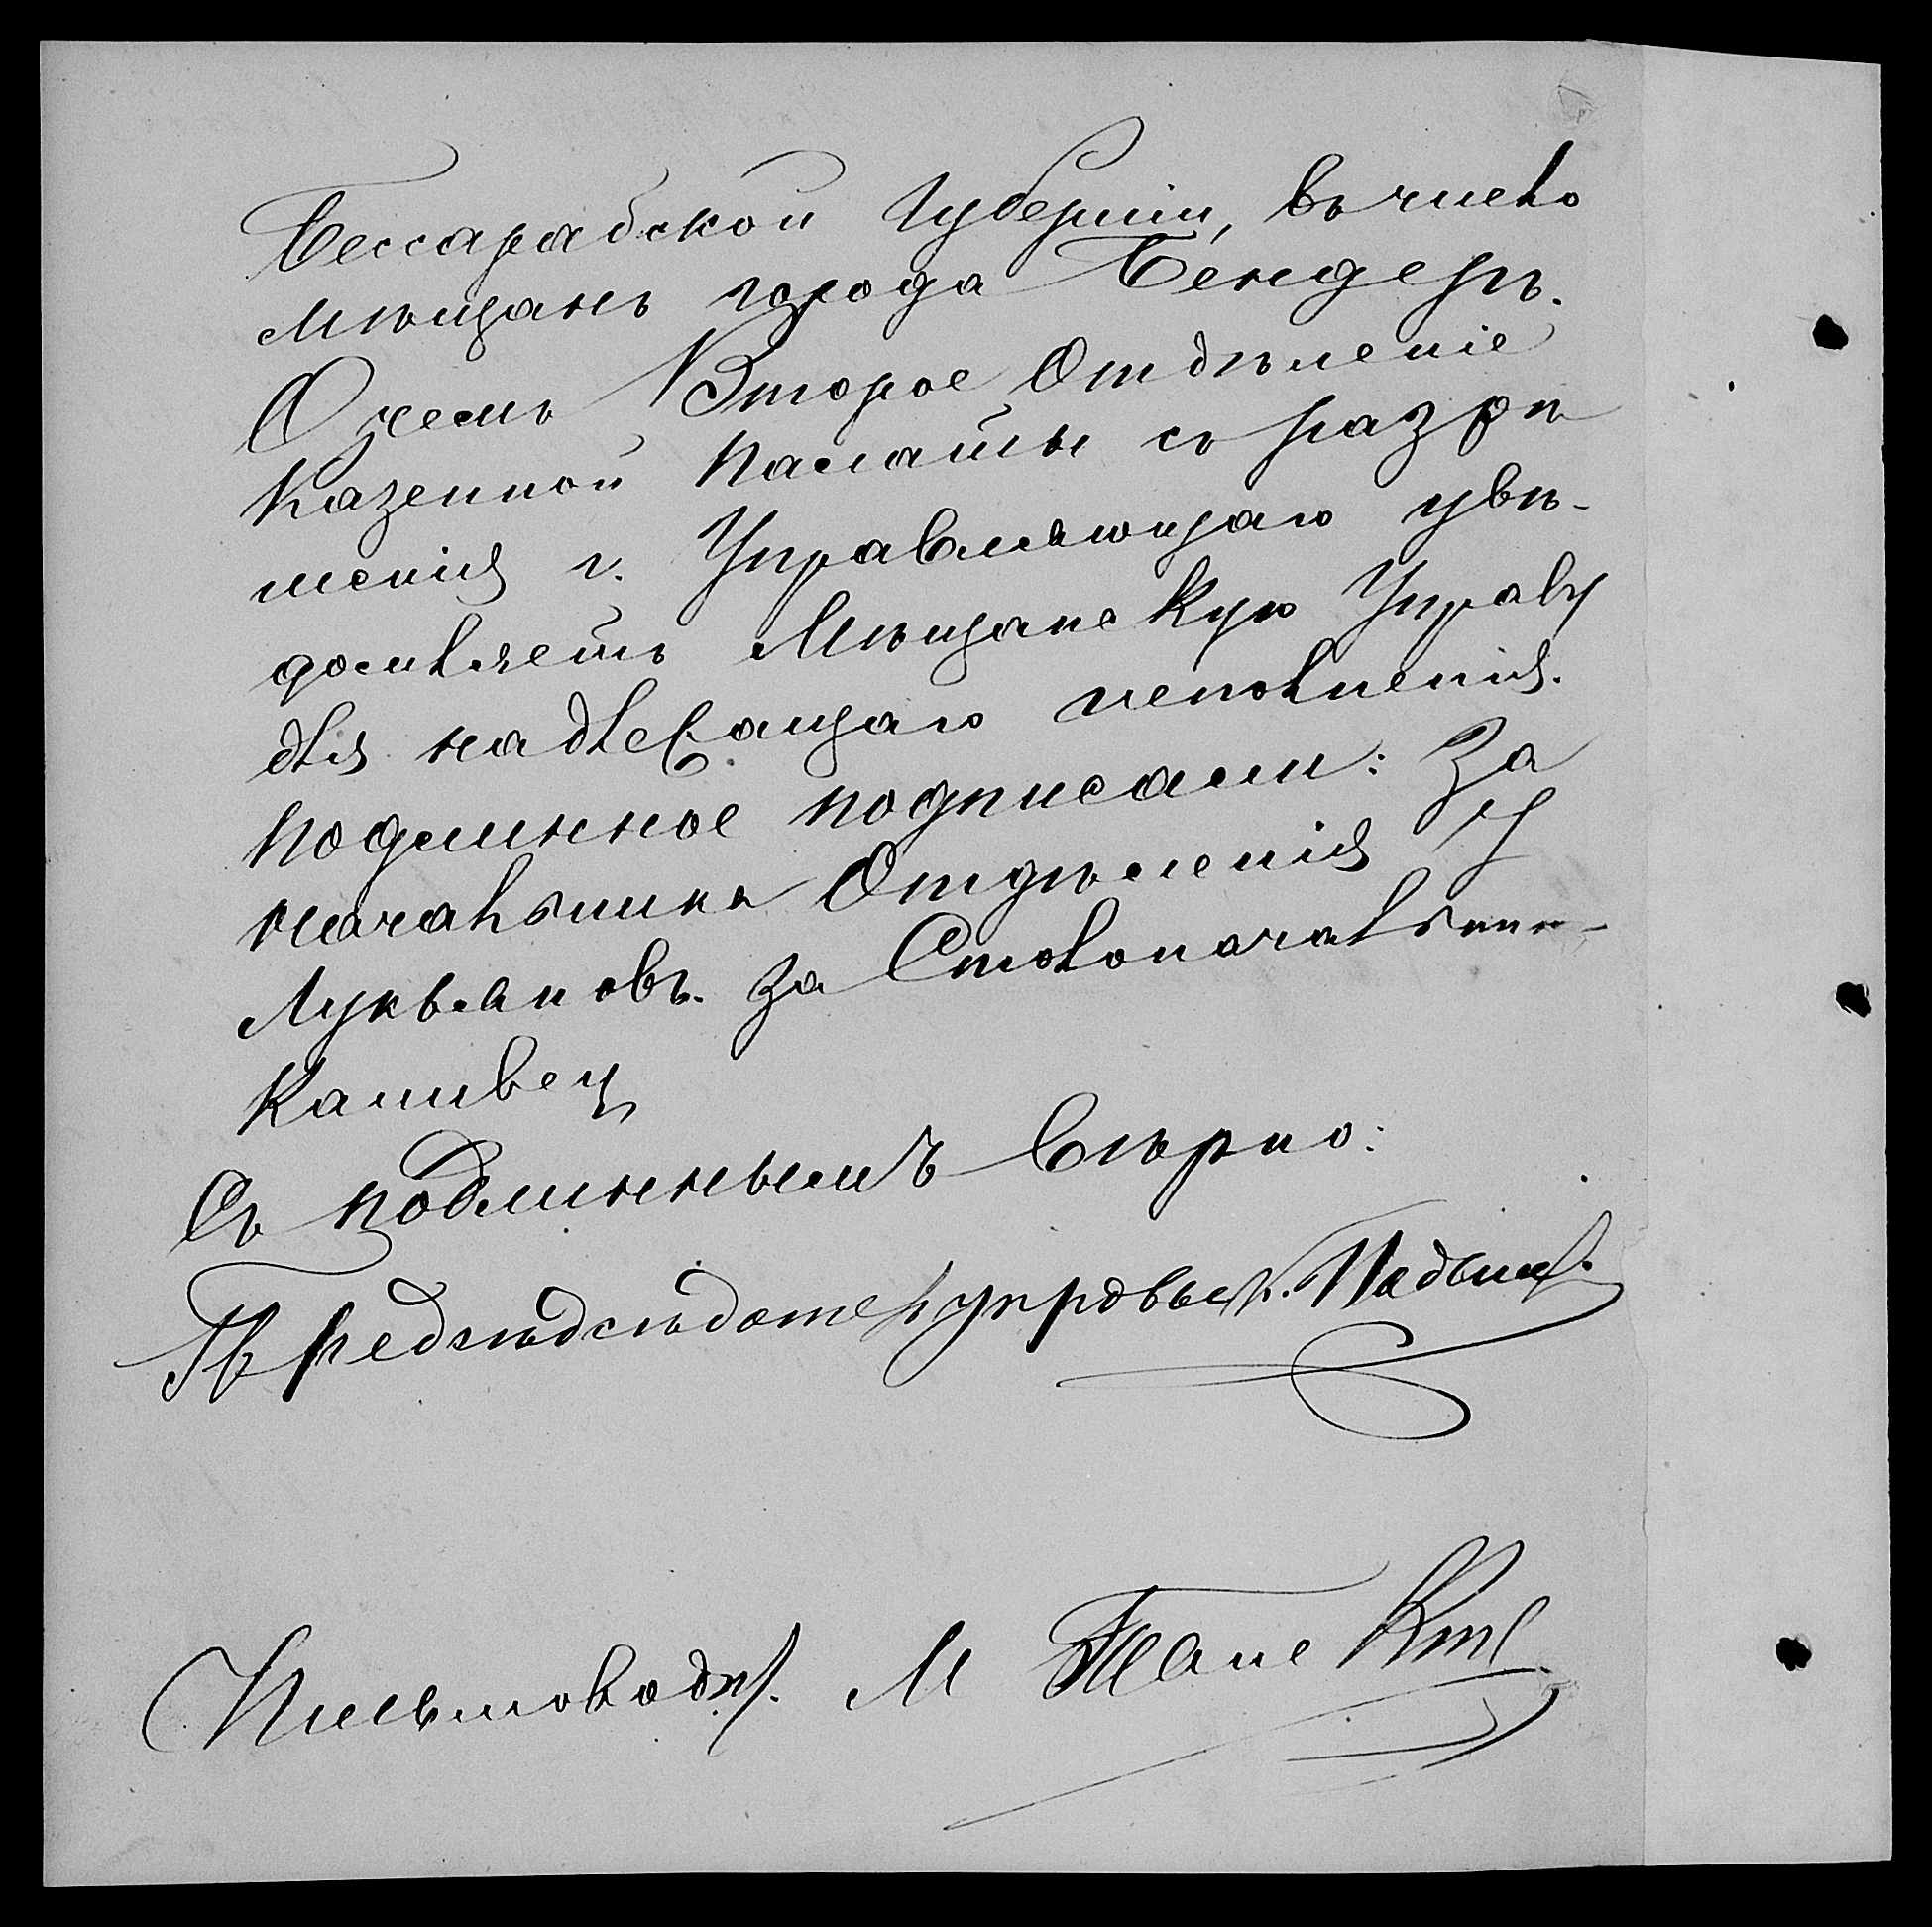 Бессарабской Губерніи, въ число
мѣщанъ города Бендеръ.
О чемъ Второе Отдѣленіе
Казенной Палаты съ разрѣ
шенія г. Управляющаго увѣ-
домляетъ Мѣщанскую Управу
для надлежащаго исполненія.
Подлинное подписали: За
Начальника Отдѣленія
Лукьяновъ. За Столоначальник-
Каливец
Съ подлиннымъ вѣрно:
Письмовод. М